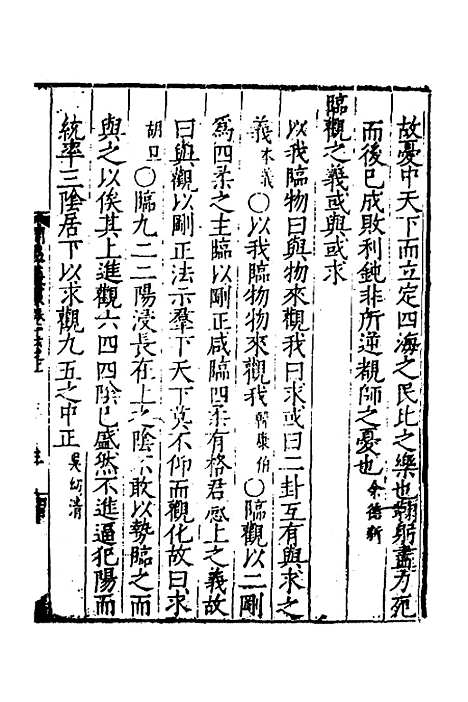 故憂中天下而立定四海之民比之樂也鞠躬盡力死
而後已成敗利鈍非所逆覩師之憂也余德新
臨觀之義或與或求
以我臨物曰與物來觀我曰求或曰二卦互有與求之
義本義〇以我臨物物來觀我韓康伯〇臨觀以二剛
爲四柔之主臨以剛正咸臨四柔有格君感上之義故
曰與觀以剛正法示羣下天下莫不仰而觀化故曰求
胡旦〇臨九二二陽浸長在上之陰不敢以勢臨之而
與之以俟其上進觀六四四陰已盛然不進逼犯陽而
統率三陰居下以求觀九五之中正吳幼清